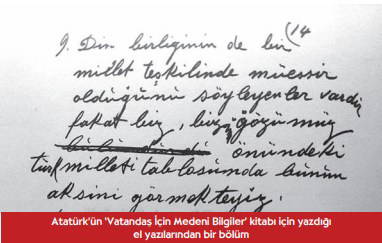 (14
9. Din birliğinin de bir
millet teşkilinde müessir
olduğunu söyleyenler vardır
fakat biz, biz gözümüz
önündeki
türk milleti tablosunda bunun
aksini görmekteyiz.
Atatürk'ün 'Vatandaş İçin Medeni Bilgiler' kitabı için yazdığı
el yazılarından bir bölüm